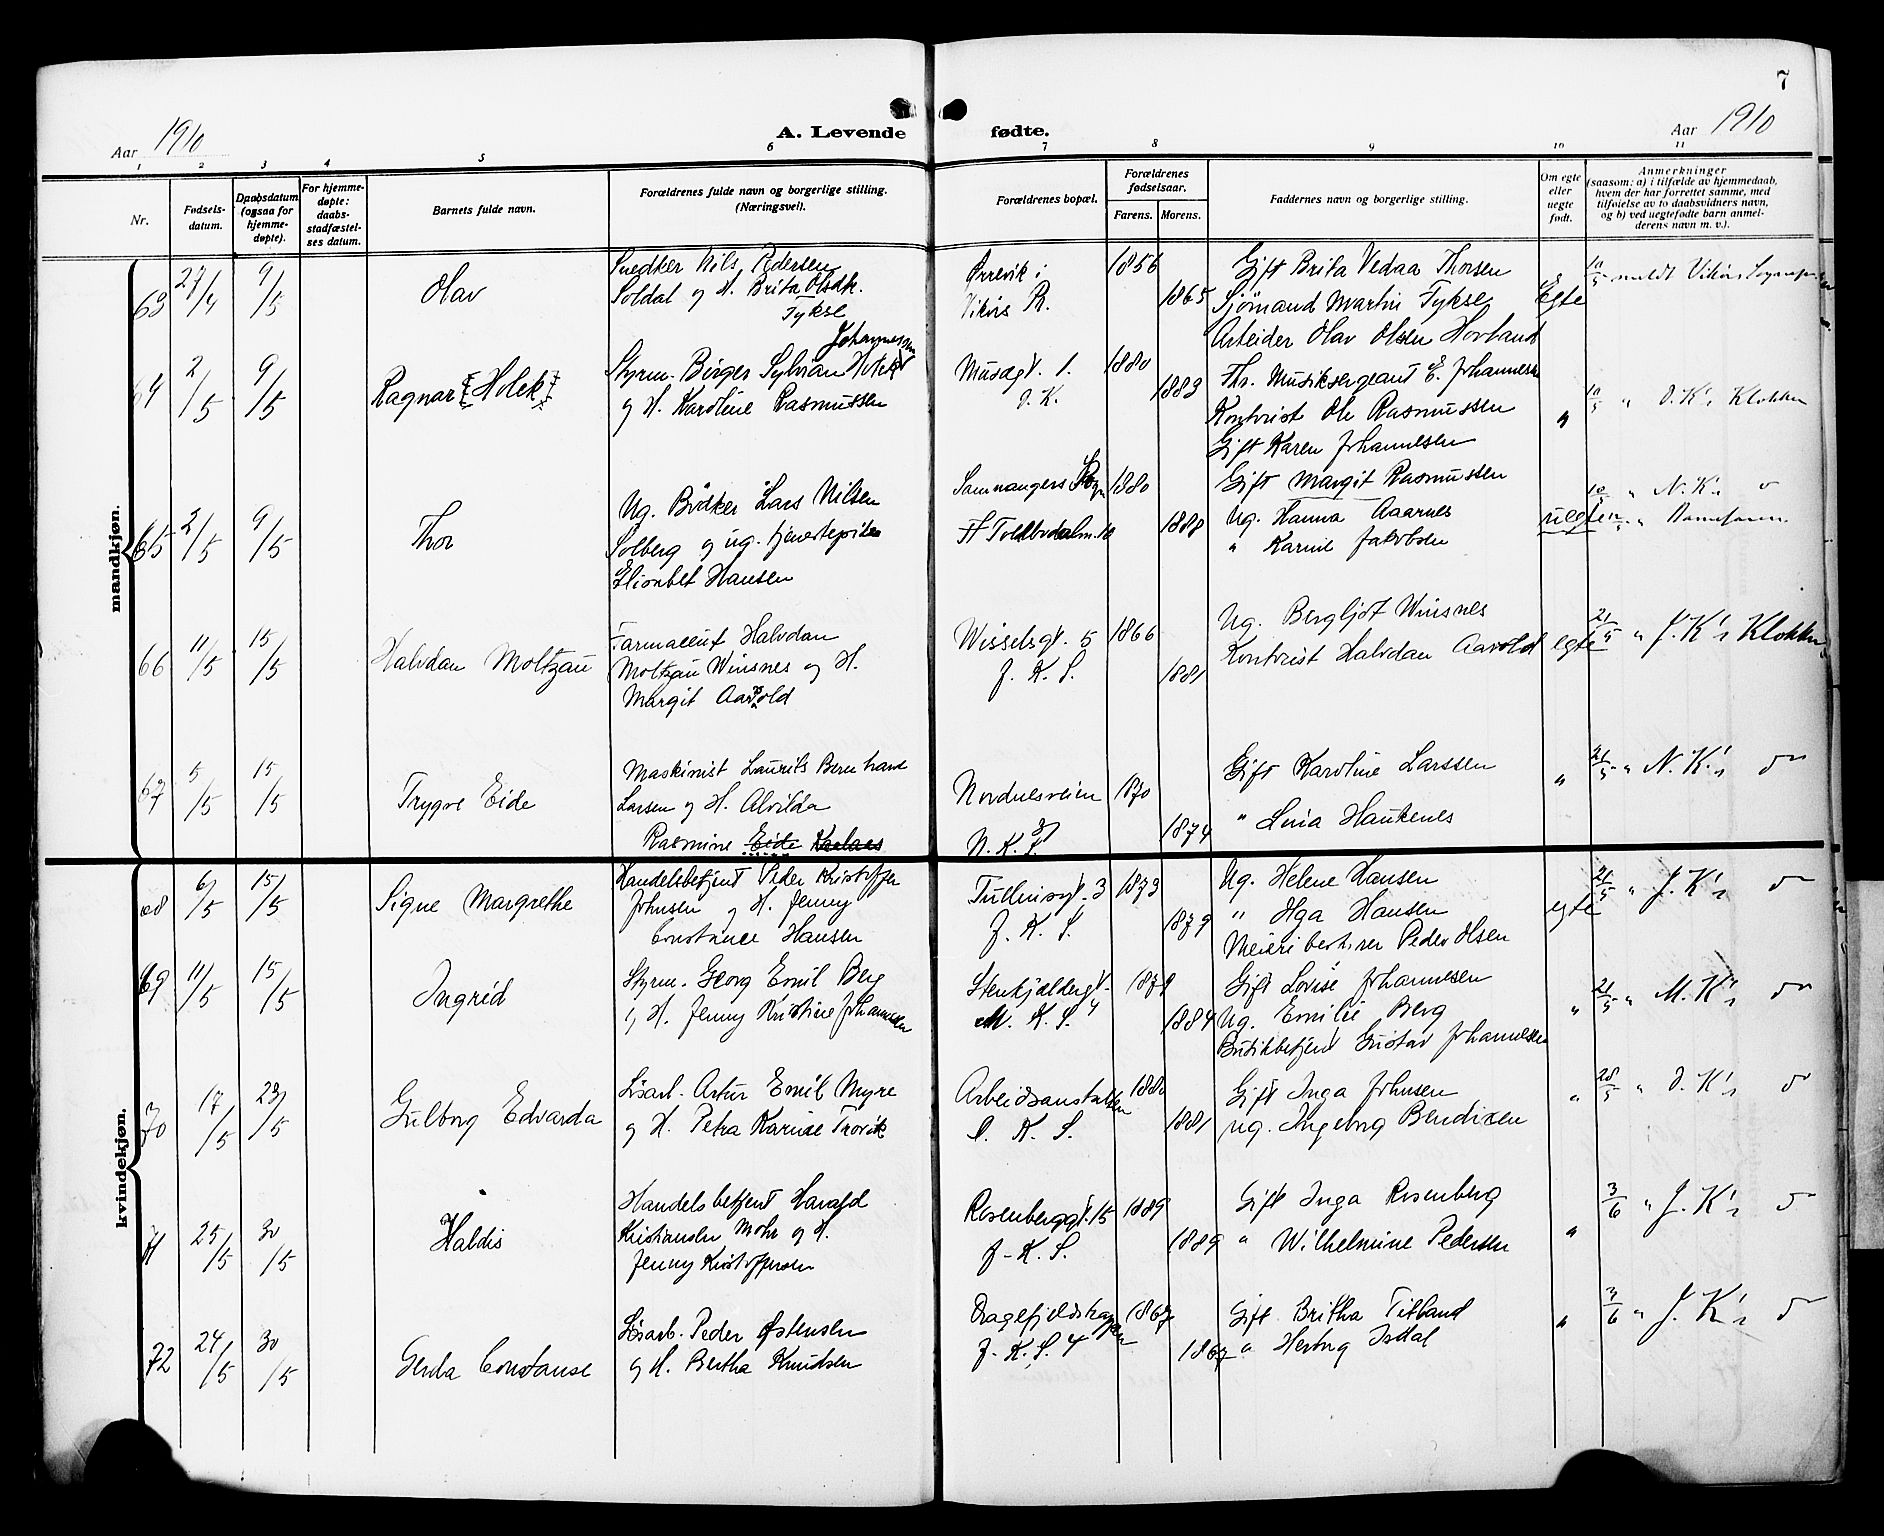 7
Aar 1910 A. Levende fødte. Aar 1910
1 2 3 4 5 6 7 8 9 10 11
Nr. Fødsels-datum. Daabsdatum (ogsaa for hjemme-døpte). For hjemme-døpte: daabs-stadfæstel-ses datum. Barnets fulde navn. Forældrenes fulde navn og borgerlige stilling. (Næringsvei). Forældrenes bopæl. Forældrenes fødselsaar. Farens. Morens. Faddernes navn og borgerlige stilling. Om egte eller uegte født. Anmerkninger (saasom: a) i tilfælde av hjemmedaab, hvem der har forrettet samme, med tilføielse av to daabsvidners navn, og b) ved uegtefødte barn anmel-derens navn m. v.).
mandkjøn.
63 27/4 9/5 Olav
Snedker Nils Pedersen
Soldal og H. Brita Olsdtr.
Tykse
Ørrevik i
Vikørs P.
1856 1865
Gift Brita Vedaa Thorsen
Sjømand Martin Tykse
Arbeider Olav Olsen Hovland
Egte
10/5 meldt Vikørs Sognepr.
64 2/5 9/5 Ragnar [Holck]
Johannessen
Styrm. Birger Sylvian Holck
og H. Karoline Rasmussen
Musægt. 1.
D. K.
1880 1883
Fhv. Musiksergeant E. Johannessen
Kontorist Ole Rasmussen
Gift Karen Johannessen
Gift Margit Rasmussen
" 10/5 " D. K's Klokker
65 2/5 9/5 Thor
Ug. Bødker Lars Nilsen
Solberg og ug. tjenestepike
Elisabet Hansen
Samnangers Sogn
Toldbodalm. 10
1880 1888
Ug. Hanna Aarnes
" Karine Jakobsen
uegte
10/5 " N. K's "
" Barnefaren
66 11/5 15/5 Halvdan Moltzau
Farmaceut Halvdan
Moltzau Winsnes og H.
Margit Aarvold
Wesselsgt. 5
J. K. S.
1866 1881
Ug. Bergljot Winsnes
Kontorist Halvdan Aarvold
egte
21/5 " J. K's Klokker
67 5/5 15/5 Trygve Eide
Maskinist Laurits Bernhard
Larsen og H. Alvilda
Rasmine Eide
Nordnesveien
N. K. S.
1870 1874
Gift Karoline Larssen
" Lina Haukenes
" 21/5 " N. K's do
kvindekjøn.
68 6/5 15/5 Signe Margrethe
Handelsbetjent Peder Kristoffer
Johnsen og H. Jenny
Constance Hansen
Tullinsgt. 3
J. K. S.
1873 1879
Ug. Helene Hansen
" Olga Hansen
Meieribestyrer Peder Olsen
egte
21/5 " J. K's do
69 11/5 15/5 Ingrid
Styrm. Georg Emil Berg
og H. Jenny Kristine Johannessen
Stenkjældergt.
M. K. S.
1879 1884
Gift Lovise Johannesen
Ug. Emilie Berg
Butikbetjent Gustav Johannessen
" 21/5 " M. K's do
70 17/5 23/5 Gulborg Edvarda
Løsarb. Artur Emil Myre
og H. Petra Karine Trovik
Arbeidsanstalten
D. K. S.
1880 1881
Gift Inga Johnsen
ug. Ingeborg Bendixen
" 28/5 " D. K's do
71 25/5 30/5 Haldis
Handelsbetjent Harald
Kristiansen Mohr og H.
Jenny Kristoffersen
Rosenberggt. 15
J. K. S.
1889 1889
Gift Inga Rosenberg
" Wilhelmine Pedersen
" 3/6 " J. K's do
72 24/5 30/5 Gerda Constanse
Løsarb. Peder Østensen
og H. Bertha Knudsen
Dragefjeldstrappen
J. K. S. 4
1867 1867
Gift Britha Titland
" Herborg Isdal
" 3/6 " J. K's do